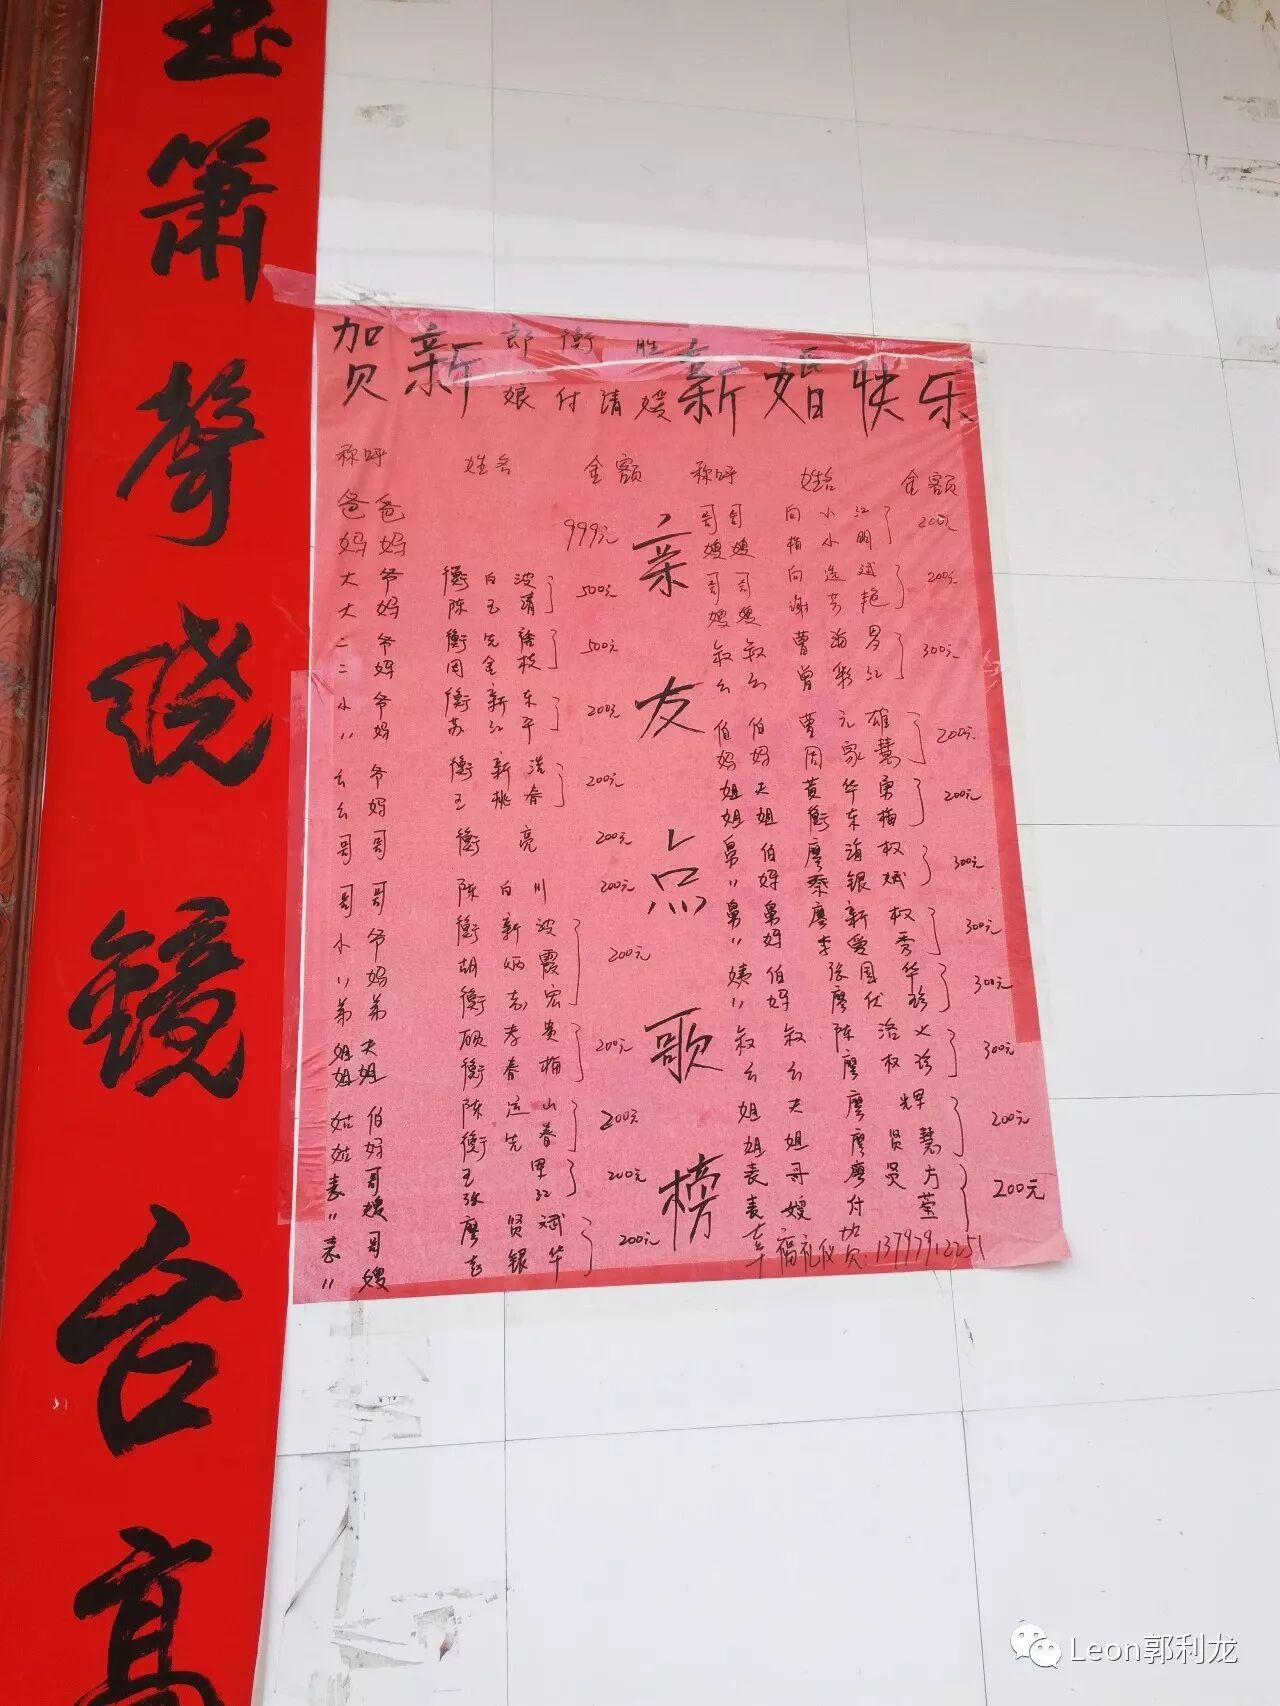 玉箫声绕镜台高
贺新郎衡胜新婚快乐
娘付请嫒
亲友点歌榜
称呼 姓名 金额
爸爸
妈妈 999元
大爷 衡白波
大妈 陈玉清 500元
二爷 衡先
二妈 周金枝 500元
小爷 衡新东
〃妈 苏红平 200元
幺爷 衡新浩
幺妈 王桃香 200元
哥哥 衡亮 200元
哥哥 陈白川 200元
小爷 衡新波
〃妈 胡炳霞 200元
弟弟 衡志宏
姐夫 顾孝贵
姐姐 衡春梅 200元
姑伯 陈运山
姑妈 衡先春 200元
表哥 王甲
〃嫂 张红 200元
表哥 廖贤斌
〃嫂 银华 200元
称呼 姓名 金额
哥哥 向小红
嫂嫂 梅小明 200元
哥哥 向逸斌
嫂嫂 谢芳艳 200元
叙叙 曹海男
幺幺 曾彩红 300元
伯伯 曹元雄
妈妈 周家慧 200元
姐夫 黄华勇
姐姐 衡东梅 200元
舅伯 廖海权
〃妈 秦银斌 300元
舅舅 廖新权
〃妈 李爱秀 300元
姨伯 张国华
〃妈 廖伏珍 300元
叙叙 陈洛火
幺幺 廖权珍 300元
姐夫 廖辉
姐姐 廖贤慧 200元
表哥 廖员方
表嫂 付莹 200元
幸福礼仪贺:13797912251
Leon郭利龙